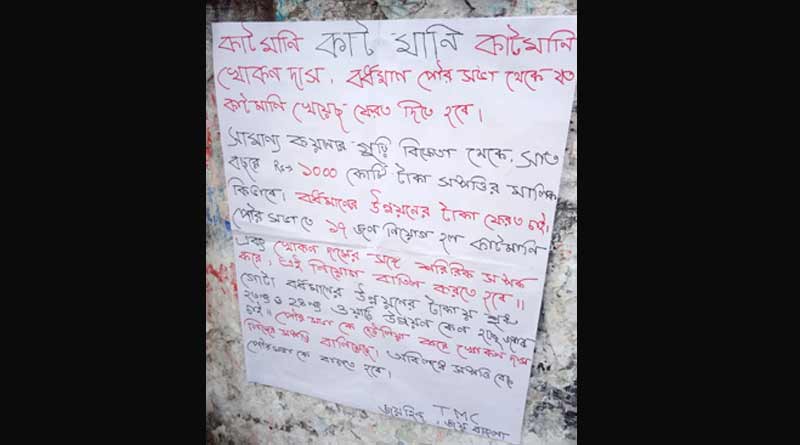 কাটমানি কাট মানি কাটমানি
খোকন দাস, বর্ধমান পৌর সভা থেকে যত
কাটমানি খেয়েছ ফেরত দিতে হবে।
সামান্য কয়লার গুড়ি বিক্রেতা থেকে, সাত
বছরে Rs → ১০০০ কোটি টাকা সম্পত্তির মালিক
কিভাবে। বর্ধমানের উন্নয়নের টাকা ফেরত চাই।
পৌর সভা তে ১৭ জন নিয়োগ হল কাটমানি
এবং খোকন দাসের সঙ্গে শারিরিক সম্পর্ক
করে, এই নিয়োগ বাতিল করতে হবে॥
গোটা বর্ধমানের উন্নয়নের টাকায় শুধু
ওয়ার্ড উন্নয়ন কেন হচ্ছে
চাই॥ পৌর সভা কে দেউলিয়া করে খোকন দাস
নিজের সম্পত্তি বানিয়েছে, অবিলম্বে সম্পত্তি
পৌরসভা কে করতে হবে।
জয়হিন্দ TMC
জয় বাংলা